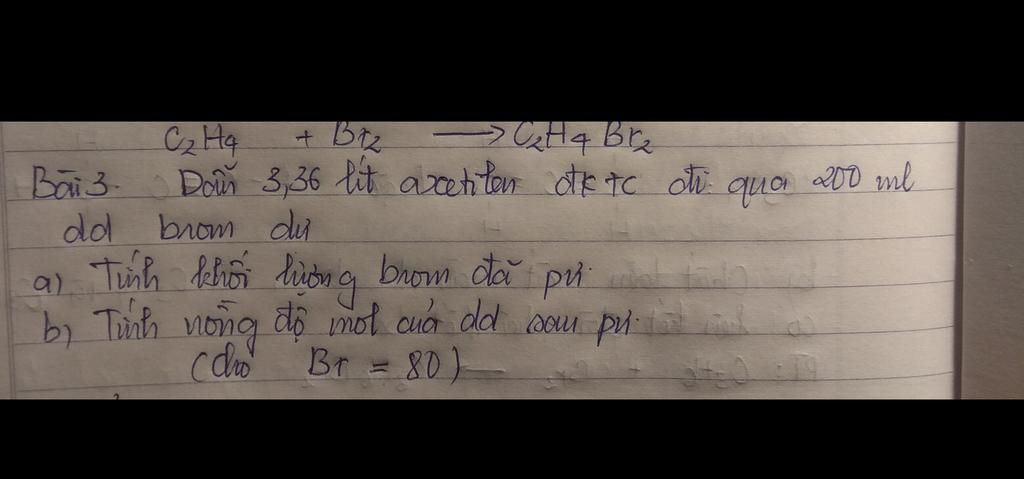 C₂H₄ + Br₂ ⟶ C₂H₄Br₂
Bài 3. Dẫn 3,36 lít axetilen đktc đi qua 200 ml
dd brom dư
a) Tính khối lượng brom đã pư.
b) Tính nồng độ mol của dd sau pư.
(cho Br = 80)